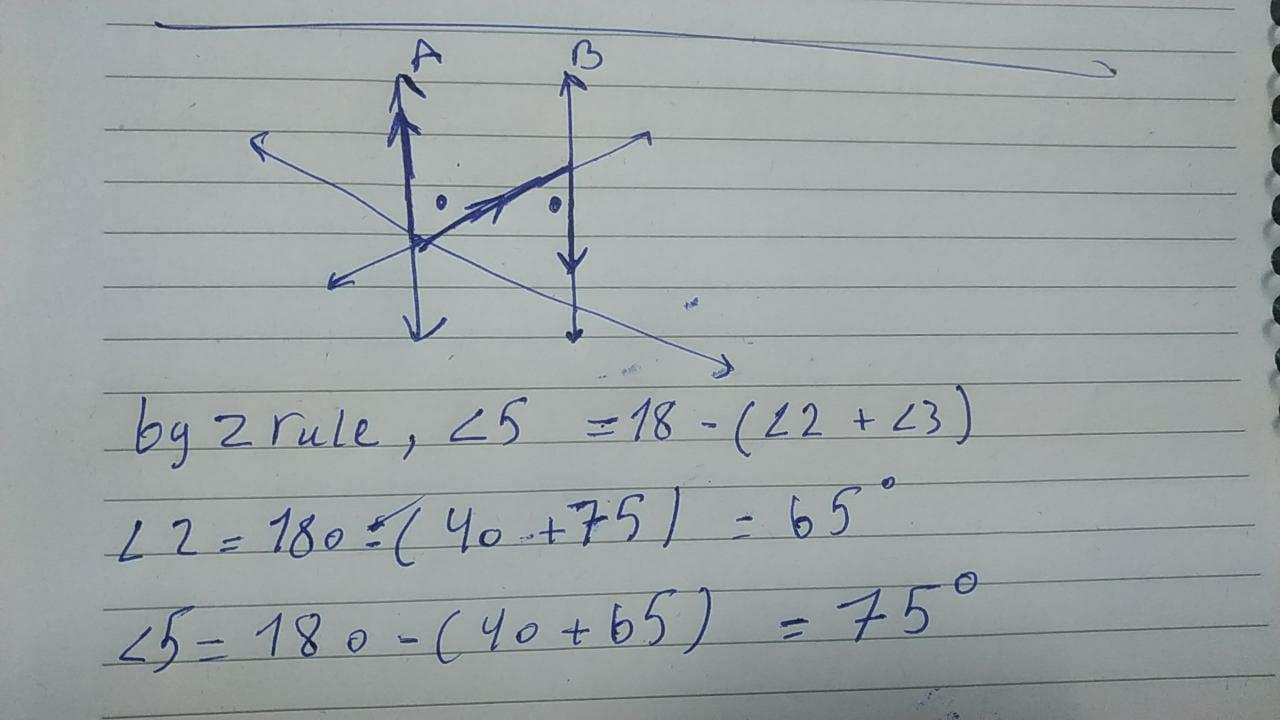 A B
by z rule, ∠5 = 18 - (∠2 + ∠3)
∠2 = 180 - (40 + 75) = 65°
∠5 = 180 - (40 + 65) = 75°